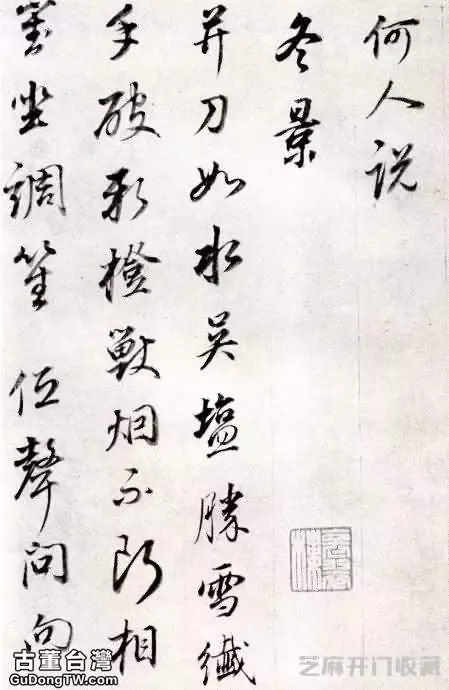 何人说
冬景
并刀如水吴塩勝雪纖
手破新橙獸烟不断相
對坐調笙低聲問向
古董台灣
GuDongTW.com
芝麻开门收藏